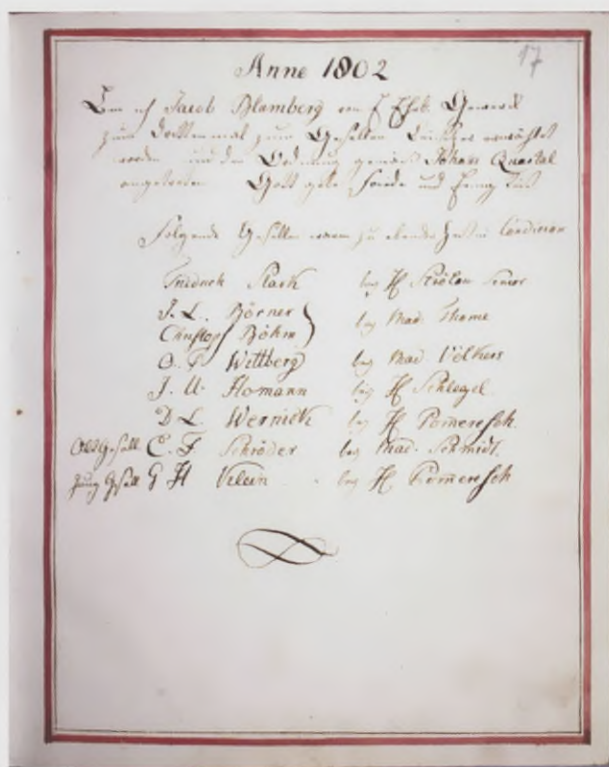 17
Anne 1802
Bin ich Jacob Blamberg von E Ehrb. Gewerck
zum drittenmal zum Gesellen erwählet
worden und der Ordnung gemäß Johann Quartal
angetreten Gott gebe Friede und
Folgende Gesellen waren zu Condicion
Friedrich Stark bey H Senior
J. L. Börner
Christoph Böhm bey Mad Thome
Wettberg bey Mad Völkers
J. U. Homann bey H Schlegel
D L Wernick bey H Pomeresch
Altgesell C. F Schröder bey Mad. Schmidt.
Jung Gesell G H Klein bey H Pomeresch